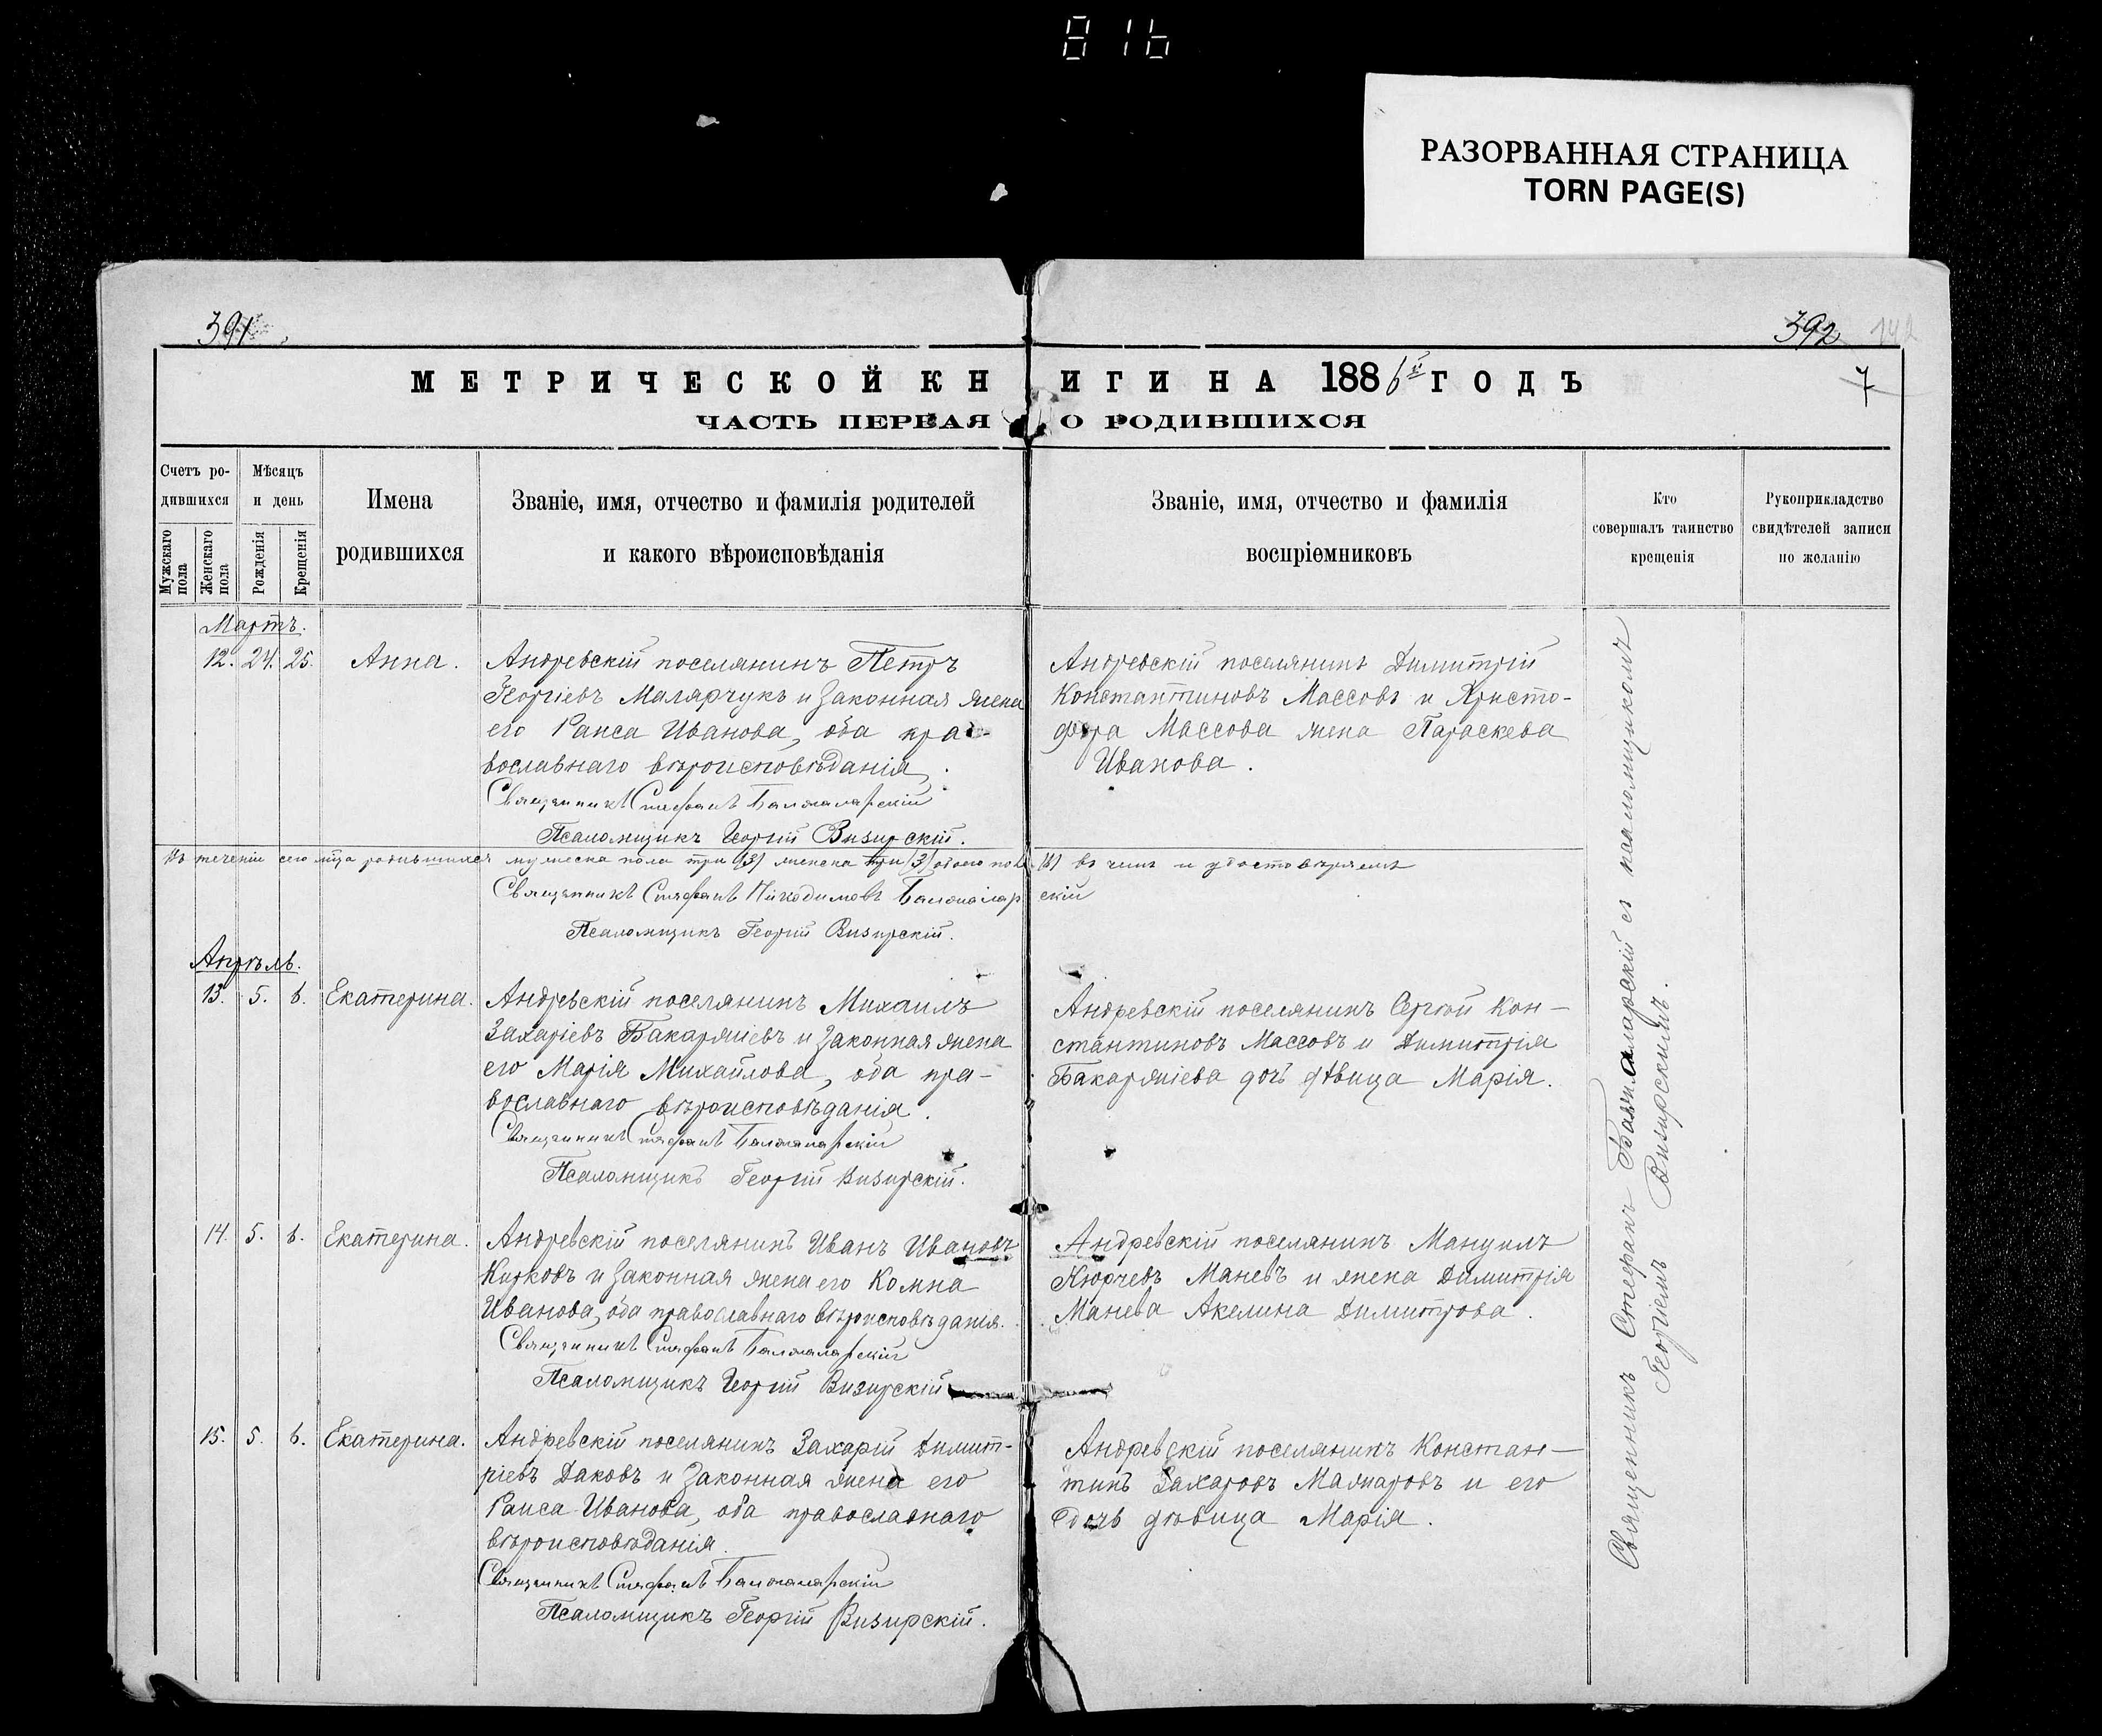 816
РАЗОРВАННАЯ СТРАНИЦА
TORN PAGE(S)
391
392
142
7
МЕТРИЧЕСКОЙ КНИГИ НА 1886й ГОДЪ
ЧАСТЬ ПЕРВАЯ О РОДИВШИХСЯ
Счетъ ро-
дившихся
Мужскаго пола
Женскаго пола
Мѣсяцъ
и день
Рожденія
Крещенія
Имена
родившихся
Званіе, имя, отчество и фамилія родителей
и какого вѣроисповѣданія
Званіе, имя, отчество и фамилія
воспріемниковъ
Кто
совершалъ таинство
крещенія
Рукоприкладство
свидѣтелей записи
по желанію
Мартъ.
12. 24. 25. Анна.
Андревскій поселянинъ Петръ
Георгіевъ Малярчукъ и законная жена
его Раиса Иванова, оба пра-
вославнаго вѣроисповѣданія.
Священникъ Стефанъ Балжаларскій
Псаломщикъ Георгій Визирскій.
Андревскій поселянинъ Димитрій
Константиновъ Массовъ и Христо-
фора Массова жена Параскева
Иванова.
Въ теченіи сего мца родившихся мужеска пола три (3) женска три (3) обоего пола (6) въ чемъ и удостовѣряемъ
Священникъ Стефанъ Никодимовъ Балжаларскій
Псаломщикъ Георгій Визирскій.
Апрѣль.
13. 5. 6. Екатерина.
Андревскій поселянинъ Михаилъ
Захаріевъ Бакаржіевъ и законная жена
его Марія Михайлова, оба пра-
вославнаго вѣроисповѣданія.
Священникъ Стефанъ Балжаларскій
Псаломщикъ Георгій Визирскій.
Андревскій поселянинъ Сергій Кон-
стантиновъ Массовъ и Димитрія
Бакаржіева дочь дѣвица Марія.
14. 5. 6. Екатерина.
Андревскій поселянинъ Иванъ Ивановъ
Кирковъ и законная жена его Комна
Иванова, оба православнаго вѣроисповѣданія.
Священникъ Стефанъ Балжаларскій
Псаломщикъ Георгій Визирскій
Андревскій поселянинъ Мануилъ
Кюрчевъ Маневъ и жена Димитрія
Манева Акелина Димитрова.
15. 5. 6. Екатерина.
Андревскій поселянинъ Захарій Димит-
ріевъ Даковъ и законная жена его
Раиса Иванова, оба православнаго
вѣроисповѣданія.
Священникъ Стефанъ Балжаларскій
Псаломщикъ Георгій Визирскій.
Андревскій поселянинъ Констан-
тинъ Захаровъ Мажаровъ и его
дочь дѣвица Марія.
Священникъ Стефанъ Балжаларскій съ псаломщикомъ
Георгіемъ Визирскимъ.